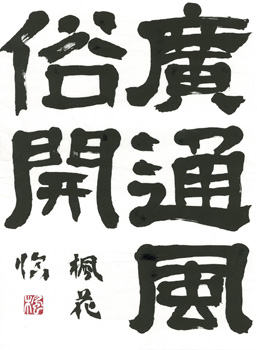 廣通風
俗開
楓花
臨